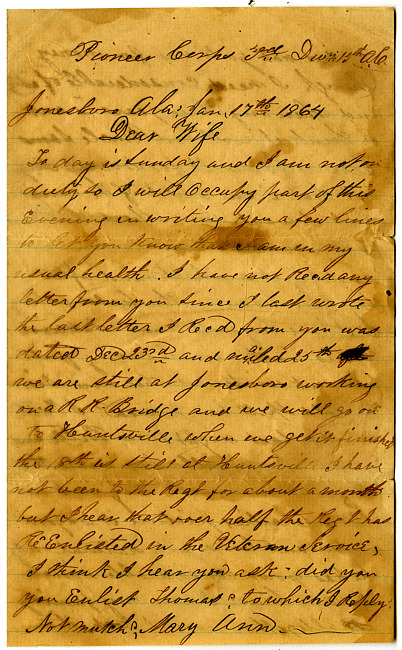 Pioneer Corps 3rd Div 15th A.C.
Jonesboro Ala, Jan, 17th 1864
Dear Wife
To day is Sunday and I am not on
duty so I will occupy part of this
Evening in writing you a few lines
to let you Know that I am in my
usual health. I have not Recd any
letter from you since I last wrote
the last letter I Recd from you was
dated Dec 23rd and mailed 25th
we are still at Jonesboro working
on a R.R. Bridge and we will go on
to Huntsville when we get it finished
the 18th is still at Huntsvil I have
not been to the Regt for about a month
but I hear that over half the Regt has
ReEnlisted in the Veteran Service,
I think I hear you ask: did you
you Enlist Thomas? to which I Reply.
Not mutch, Mary Ann.